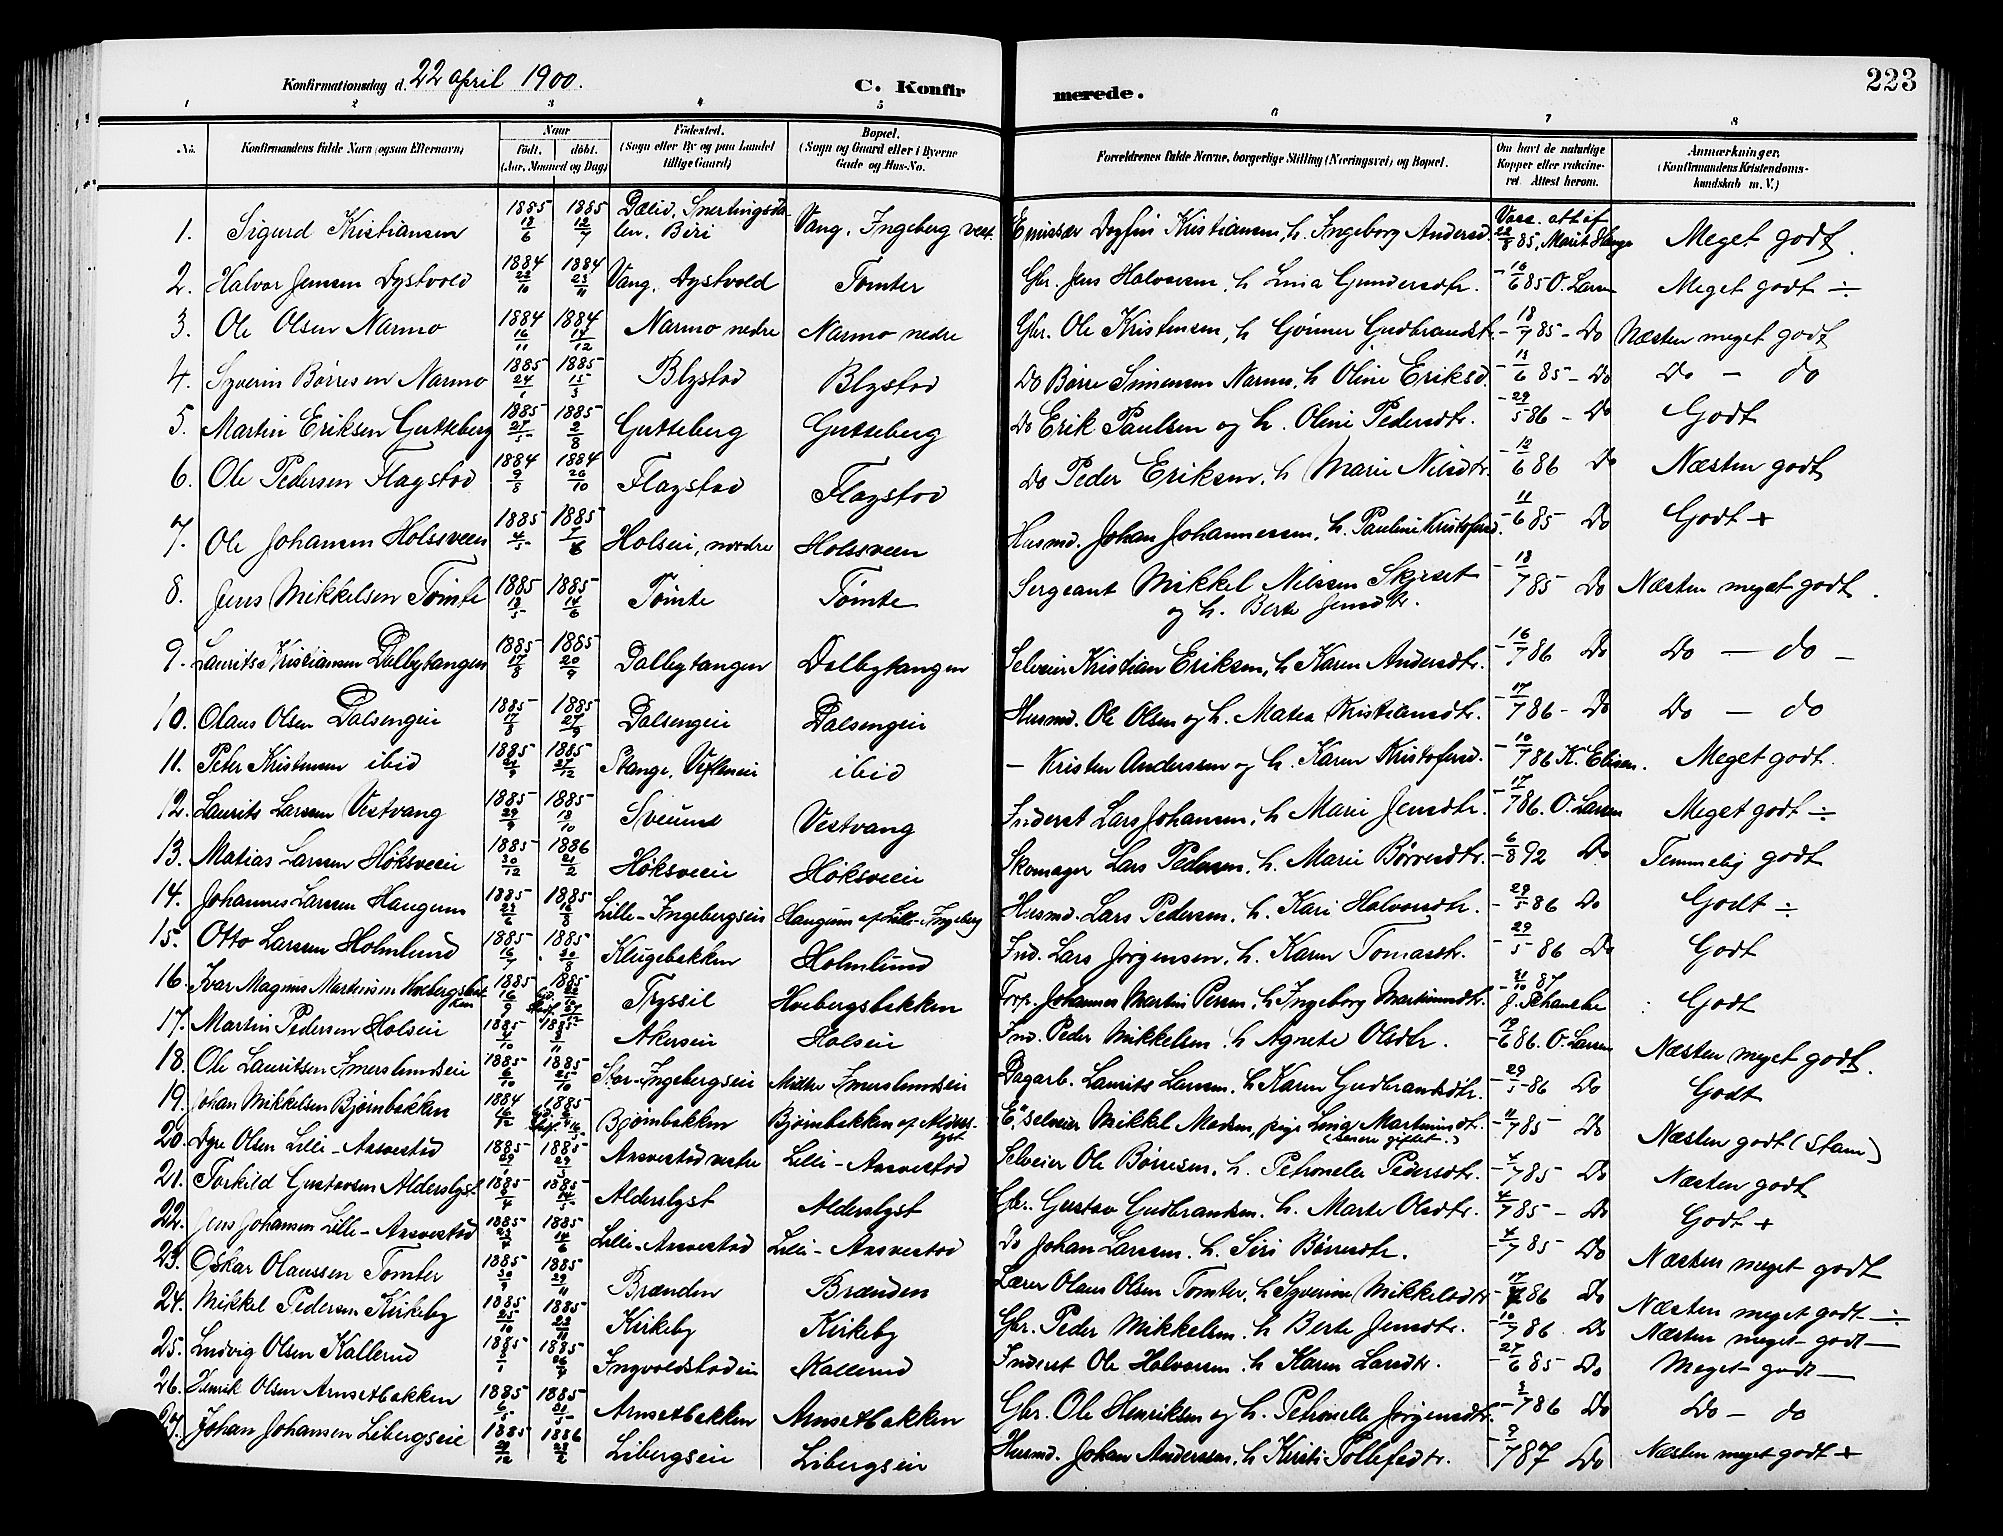 Konfirmationsdag d. 22 april 1900.
C. Konfirmerede.
223
1 2 3 4 5 6 7 8
No. Konfirmandens fulde Navn (ogsaa Efternavn) Naar født. døbt. (Aar, Maaned og Dag) Fødested. (Sogn eller By og paa Landet tillige Gaard) Bopæl. (Sogn og Gaard eller i Byerne Gade og Hus-No. Forældrenes fulde Navne, borgerlige Stilling (Næringsvei) og Bopæl. Om havt de naturlige Kopper eller vakcineret. Attest herom. Anmærkninger. (Konfirmandens Kristendomskundskab m. V.)
1. Sigurd Kristiansen 1885 13/6 1885 12/7 Dælid, Snertingsdalen, Biri Vang, Ingeberg vest. Emissær Dagfin Kristiansen, h. Ingeborg Andersd. Vacc. att af 22/8 85, Marit Hauge Meget godt.
2. Halvor Jensen Dystvold 1884 22/10 1884 23/11 Vang, Dystvold Tomter Gbr. Jens Halvorsen, h. Lina Gundersdtr. - 16/6 85 O. Larsen Meget godt ÷
3. Ole Olsen Narmo 1884 16/11 1884 14/12 Narmo nedre Narmo nedre Gbr. Ole Kristensen, h. Gunner Gudbrandsdtr. - 18/7 85 - Do Næsten meget godt
4. Syverin Børresen Narmo 1885 24/1 1885 15/3 Blystad Blystad Do Børre Simensen Narmo, h. Oline Eriksd. - 13/6 85 - Do Do - do
5. Martin Eriksen Gutteberg 1885 27/5 1885 2/8 Gutteberg Gutteberg Do Erik Paulsen og h. Oline Pedersdtr. - 29/5 86 - Do Godt
6. Ole Pedersen Flagstad 1884 9/8 1884 20/10 Flagstad Flagstad Do Peder Eriksen, h. Marie Nilsdtr. - 12/6 86 Do Næsten godt
7. Ole Johansen Holssveen 1885 4/5 1885 Holseie, nordre Holssveen Husmd. Johan Johannessen, h. Pauline Kristofersd. - 11/6 85 Do Godt +
8. Jens Mikkelsen Tømte 1885 13/5 1885 14/6 Tømte Tømte Sergeant Mikkel Nilssen Skjeset og h. Berte Jensdtr. - 18/7 85 Do Næsten meget godt.
9. Laurits Kristiansen Dalbytangen 1885 17/8 1885 20/9 Dalbytangen Dalbytangen Selveier Kristian Eriksen, h. Karen Andersdtr. - 16/7 86 Do Do - do -
10. Olaus Olsen Dalsengeie 1885 17/8 1885 27/9 Dalsengeie Dalsengeie Husmd. Ole Olsen og h. Matea Kristiansdtr. - 17/7 86 - Do Do - do
11. Peter Kristensen ibid 1885 1885 27/12 Stange, ibid - Kristen Anderssen og h. Karen Kristofersd. - 10/7 86 K. Eliasen. Meget godt.
12. Laurits Larssen Vestvang 1885 29/9 1885 18/10 Sveum Vestvang Inderst Lars Johansen, h. Marie Jensdtr. - 17/7 86. O. Larsen Meget godt ÷
13. Matias Larssen Høksveeie 1885 30/12 1886 21/2 Høksveeie Høksveeie Skomager Lars Pedersen, h. Marie Børresdtr. - 6/8 92 Do Temmelig godt
14. Johannes Larssen Haugum 1885 29/6 1885 16/8 Lille-Ingebergseie Haugum af Lille-Ingeberg Husmd. Lars Pedersen, h. Kari Halvorsdtr. - 29/5 86 Do Godt ÷
15. Otto Larssen Holmlund 1885 16/7 1885 30/8 Klugebakken Holmlund Ind. Lars Jørgensen, h. Karen Tomasdtr. - 29/5 86 Do Godt
16. Ivar Magnus Martinsen Hoebergsbakken 1885 16/9 1885 Tryssil Hoebergsbakken Torp. Johannes Martin Persen, h. Ingeborg Martinusdtr. - 31/10 87 J. Schanche Godt
17. Martin Pedersen Holseie 1885 4/10 1885 8/11 Akerseie Holseie Ind. Peder Mikkelsen, h. Agnete Olsdtr. - 19/6 86. O. Larsen Næsten meget godt.
18. Ole Lauritsen Imerslundseie 1885 6/10 1885 25/10 Stor-Ingebergseie Midtre Imerslundseie Dagarb. Laurits Larssen, h. Karen Gudbrandsdtr. - 29/5 86 Do Godt
19. Johan Mikkelsen Bjørnbakken 1884 16/12 1885 Bjørnbakken Bjørnbakken af Alderslyst E., selveier Mikkel Madsen, pige Lina Martinusdt. (senere giftet.) - 11/7 85 - Do Næsten godt (Stam)
20. Dyre Olsen Lille-Arsvestad 1885 29/1 1885 29/3 Arsvestad vestre Lille-Arsvestad Selveier Ole Børresen, h. Petronelle Pedersdtr. - 4/7 85 - Do Næsten godt
21. Torkild Gustavsen Alderslyst 1885 3/4 1885 14/5 Alderslyst Alderslyst Gbr. Gustav Gudbrandsen, h. Marte Olsdtr. - 4/7 85 - Do Godt +
22. Jens Johansen Lille-Arsvestad 1885 23/4 1885 14/6 Lille-Arsvestad Lille-Arsvestad Do Johan Larssen, h. Siri Børresdtr. - 4/7 85 - Do Næsten meget godt
23. Oskar Olaussen Tomter 1885 30/9 1885 29/11 Brænden Brænden Lærer Olaus Olsen Tomter, h. Syverine Mikkelsdtr - 17/7 86 Do Næsten meget godt ÷
24. Mikkel Pedersen Kirkeby 1885 25/10 1885 22/11 Kirkeby Kirkeby Gbr. Peder Mikkelsen, h. Berte Jensdtr. - 10/7 86. Do Næsten meget godt -
25. Ludvig Olsen Kallerud 1885 8/1 1885 26/4 Ingvoldstadeie Kallerud Inderst Ole Halvorsen, h. Karen Larsdtr. - 27/6 85 - Do Meget godt -
26. Henrik Olsen Arnsetbakken 1885 6/5 1885 31/5 Arnsetbakken Arnsetbakken Gbr. Ole Henriksen og h. Petronelle Jørgensdtr. - 3/7 86 Do Do - do
27. Johan Johansen Libergseie 1885 29/12 1886 28/2 Libergseie Libergseie Husmd. Johan Anderssen, h. Kirsti Tollefsdtr. - 9/7 87 Do Næsten meget godt +